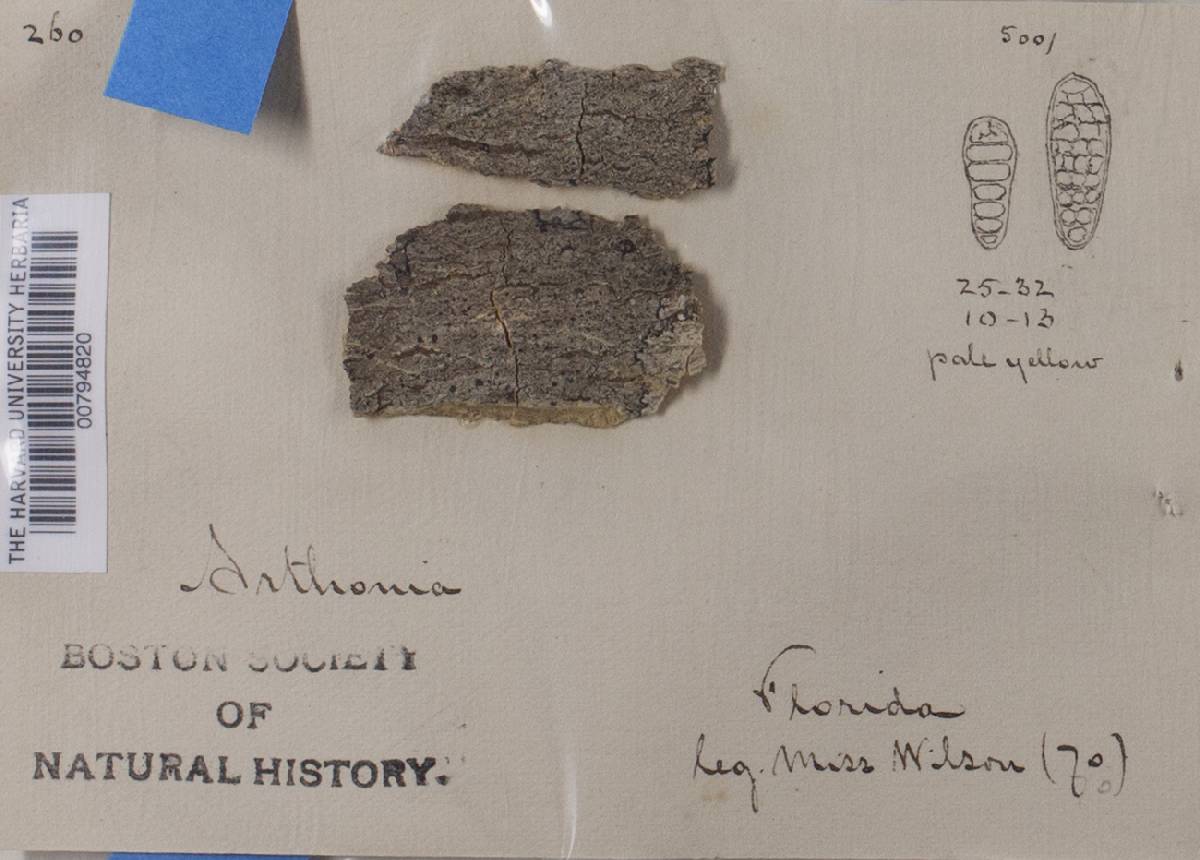 260
500/
THE HARVARD UNIVERSITY HERBARIA
00794820
25-32
10-13
pale yellow
Arthonia
BOSTON SOCIETY
OF
NATURAL HISTORY.
Florida
leg. Miss Wilson (70)